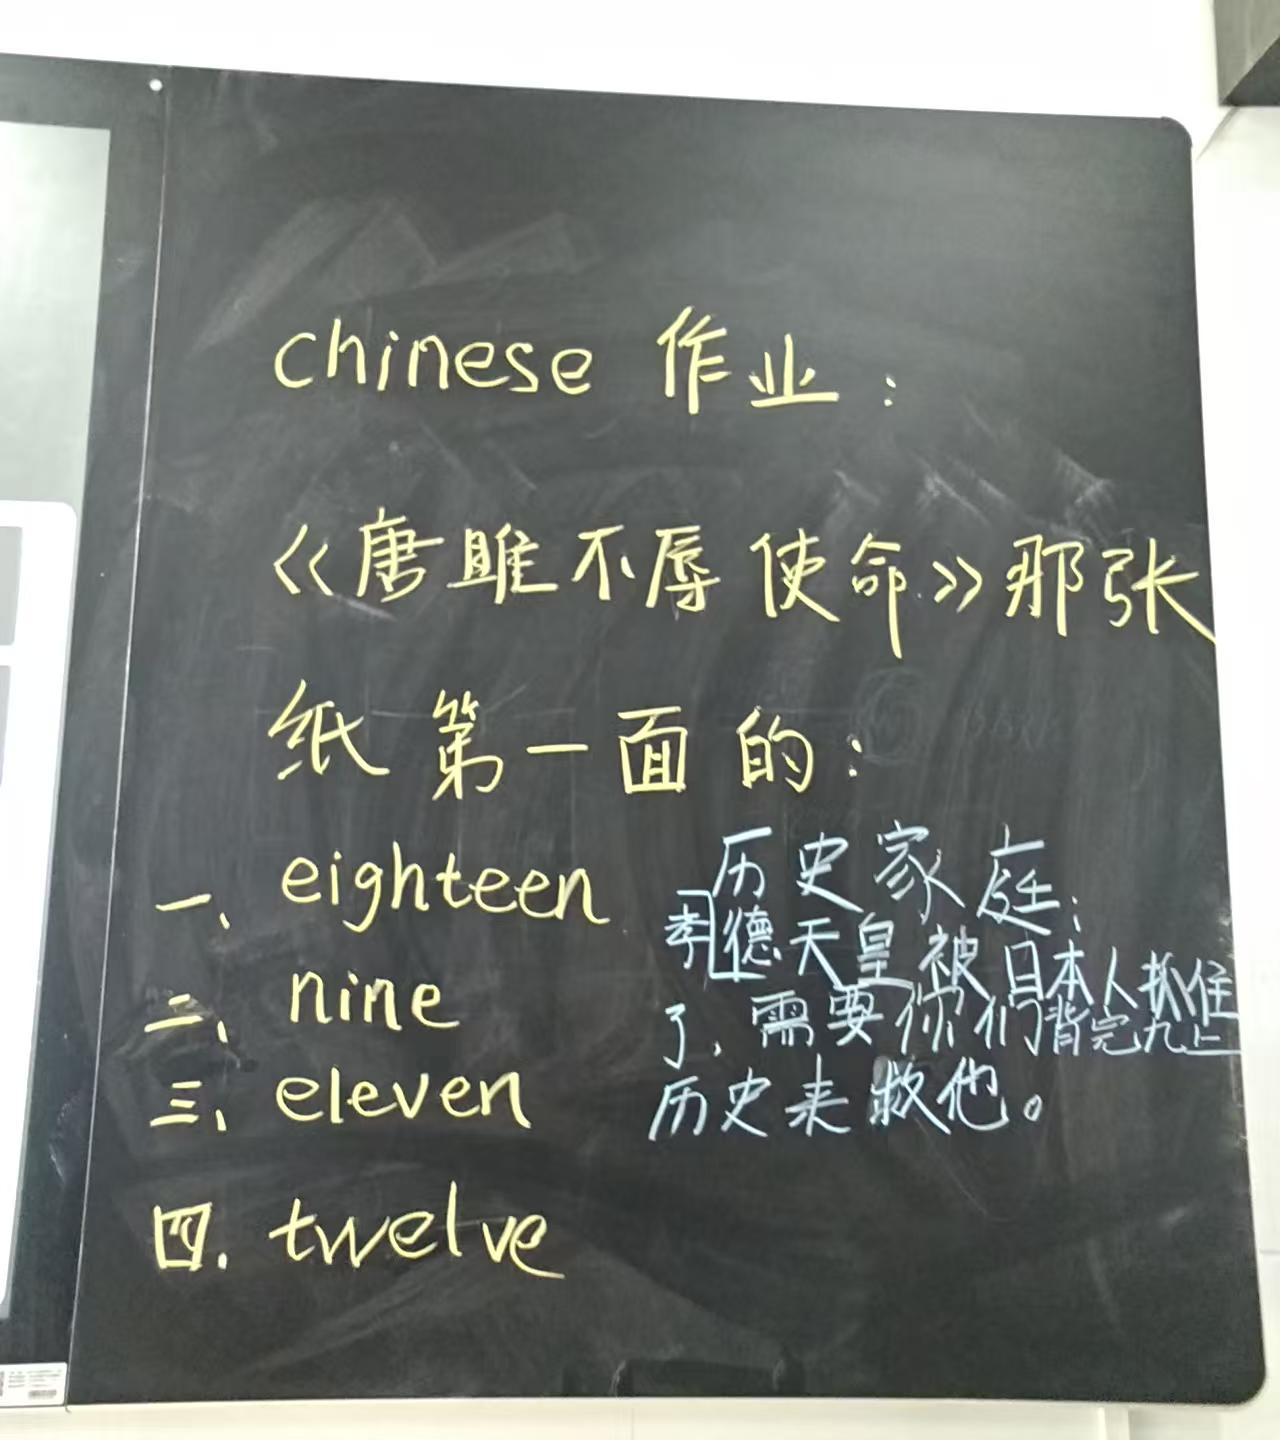 chinese 作业：
《唐雎不辱使命》那张
纸第一面的：
一、eighteen
二、nine
三、eleven
四、twelve
历史家庭：
孝德天皇被日本人抓住
了，需要你们背完九上
历史来救他。